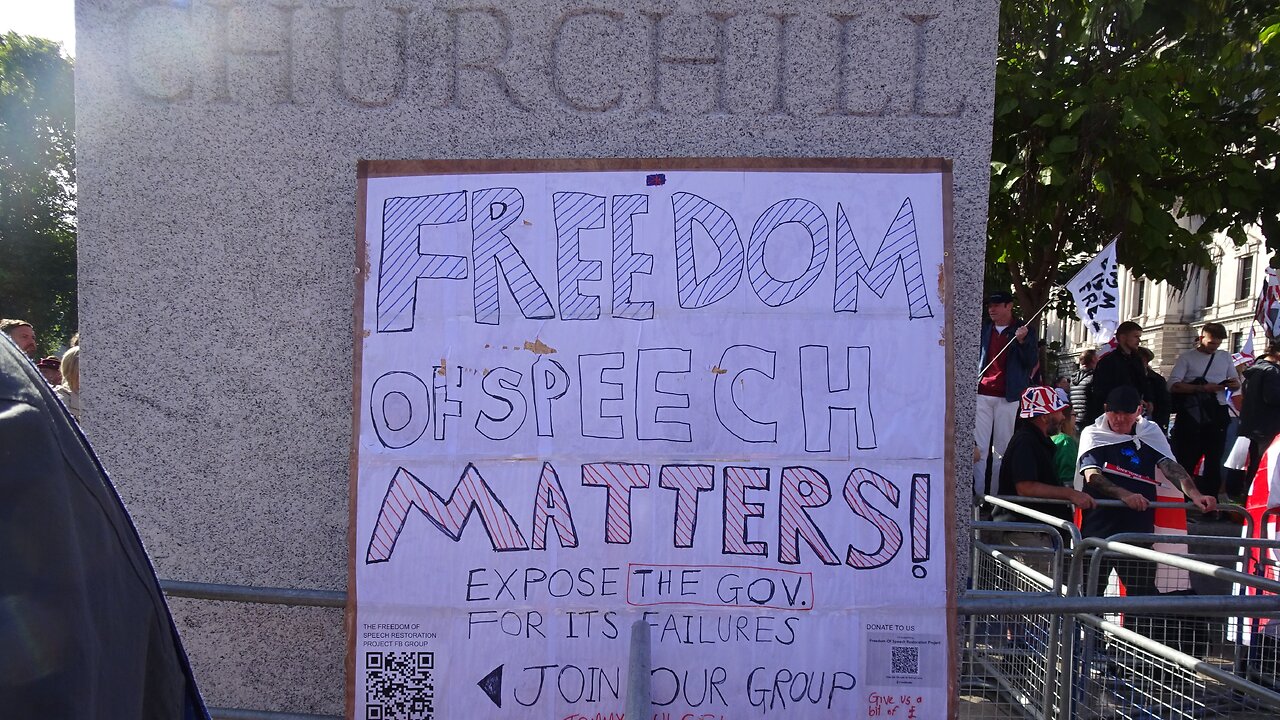 CHURCHILL
FREEDOM
OF SPEECH
MATTERS!
EXPOSE THE GOV.
FOR ITS FAILURES
THE FREEDOM OF
SPEECH RESTORATION
PROJECT FB GROUP
JOIN OUR GROUP
DONATE TO US
Freedom Of Speech Restoration Project
Give us a
bit of £